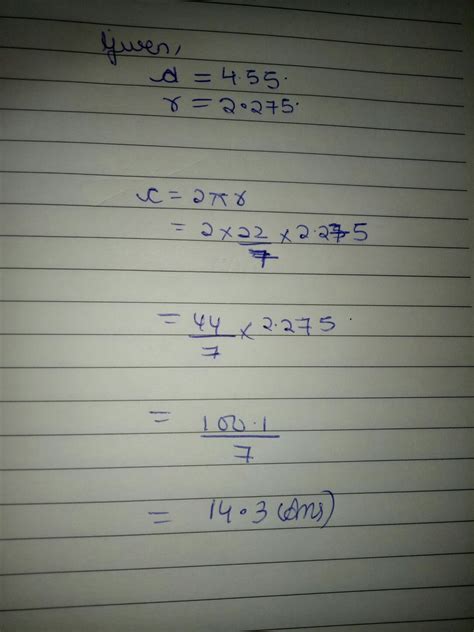 Given,
d = 4.55.
r = 2.275.
c = 2πr
= 2 × 22/7 × 2.275
= 44/7 × 2.275.
= 100.1/7
= 14.3 (Ans)